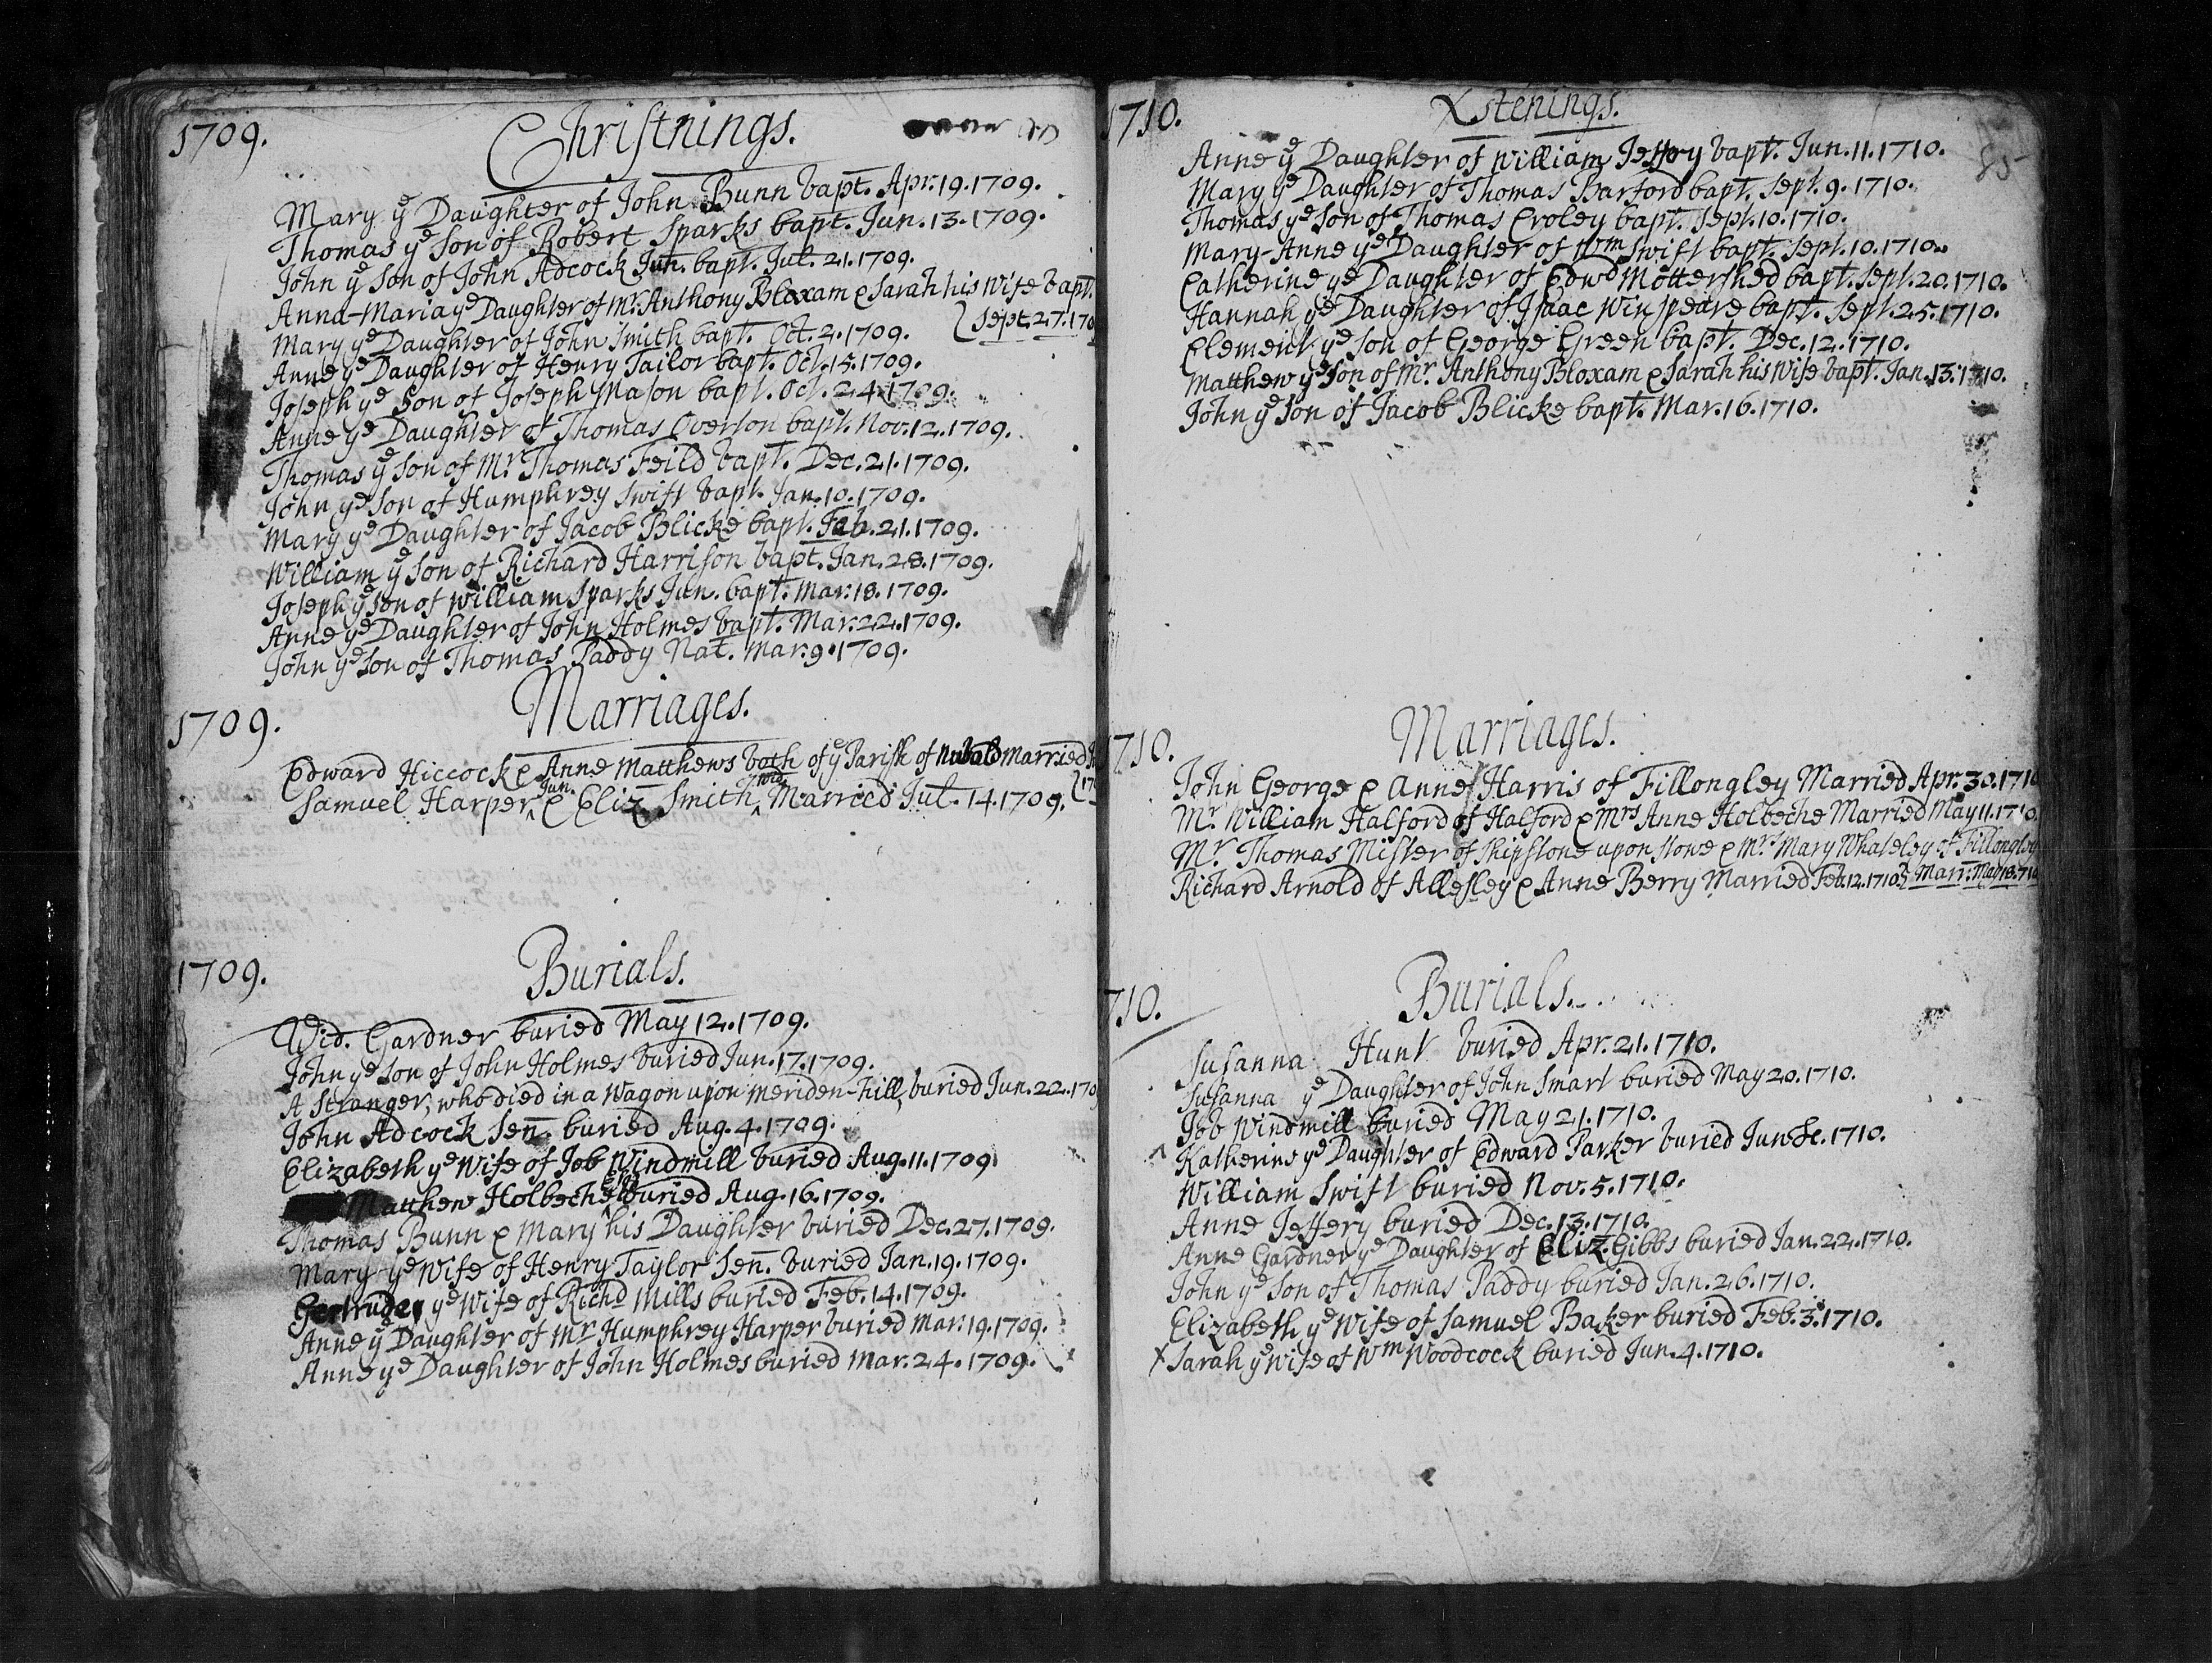 1709.
Christnings.
Mary ye Daughter of John Bunn bapt. Apr. 19. 1709.
Thomas ye Son of Robert Sparks bapt. Jun. 13. 1709.
John ye Son of John Adcock Jun. bapt. Jul. 21. 1709.
Anna-Maria ye Daughter of Mr. Anthony Bloxam & Sarah his Wife bapt.
Mary ye Daughter of John Smith bapt. Oct. 2. 1709. { Sept. 27. 170
Anne ye Daughter of Henry Tailor bapt. Oct. 15. 1709.
Joseph ye Son of Joseph Mason bapt. Oct. 24. 1709.
Anne ye Daughter of Thomas Overton bapt. Nov. 12. 1709.
Thomas ye Son of Mr. Thomas Feild bapt. Dec. 21. 1709.
John ye Son of Humphrey Swift bapt. Jan. 10. 1709.
Mary ye Daughter of Jacob Blicke bapt. Feb. 21. 1709.
William ye Son of Richard Harrison bapt. Jan. 28. 1709.
Joseph ye Son of William Sparks Jun. bapt. Mar. 18. 1709.
Anne ye Daughter of John Holmes bapt. Mar. 22. 1709.
John ye Son of Thomas Paddy Nat. Mar. 9. 1709.
Marriages.
1709.
Edward Hiccock & Anne Matthews both of ye Parish of Married
Samuel Harper Jun. & Eliz. Smith wid. Married Jul. 14. 1709.
Burials.
1709.
Wid. Gardner buried May 12. 1709.
John ye Son of John Holmes buried Jun. 17. 1709.
A Stranger, who died in a Wagon upon Meriden-hill, buried Jun. 22. 170
John Adcock Sen. buried Aug. 4. 1709.
Elizabeth ye Wife of Job Windmill buried Aug. 11. 1709
Matthew Holbeche Esq buried Aug. 16. 1709.
Thomas Bunn & Mary his Daughter buried Dec. 27. 1709.
Mary ye Wife of Henry Taylor Sen. buried Jan. 19. 1709.
Gertrude ye Wife of Richd Mills buried Feb. 14. 1709.
Anne ye Daughter of Mr Humphrey Harper buried Mar. 19. 1709.
Anne ye Daughter of John Holmes buried Mar. 24. 1709.
1710.
Xstenings.
85
Anne ye Daughter of William Jeffery bapt. Jun. 11. 1710.
Mary ye Daughter of Thomas Barford bapt. Sept. 9. 1710.
Thomas ye Son of Thomas Croley bapt. Sept. 10. 1710.
Mary-Anne ye Daughter of Wm Swift bapt. Sept. 10. 1710.
Catherine ye Daughter of Edwd Mottershed bapt. Sept. 20. 1710.
Hannah ye Daughter of Isaac Winspeare bapt. Sept. 25. 1710.
Clement ye Son of George Green bapt. Dec. 12. 1710.
Matthew ye Son of Mr. Anthony Bloxam & Sarah his Wife bapt. Jan. 13. 1710.
John ye Son of Jacob Blicke bapt. Mar. 16. 1710.
Marriages.
710.
John George & Anne Harris of Fillongley Married Apr. 30. 1710
Mr. William Halford of Halford & Mrs Anne Holbeche Married May 11. 1710.
Mr. Thomas Mister of Shipstone upon Stowe & Mrs Mary Whateley of Fillongley
Richard Arnold of Allesley & Anne Berry Married Feb. 12. 1710 } Marr. May 18. 710
Burials.
710.
Susanna Hunt buried Apr. 21. 1710.
Susanna ye Daughter of John Smart buried May 20. 1710.
Job Windmill buried May 21. 1710.
Katherine ye Daughter of Edward Parker buried 1710.
William Swift buried Nov. 5. 1710.
Anne Jeffery buried Dec. 13. 1710.
Anne Gardner ye Daughter of Eliz. Gibbs buried Jan. 22. 1710.
John ye Son of Thomas Paddy buried Jan. 26. 1710.
Elizabeth ye Wife of Samuel Baker buried Feb. 3. 1710.
X Sarah ye Wife of Wm Woodcock buried Jun. 4. 1710.